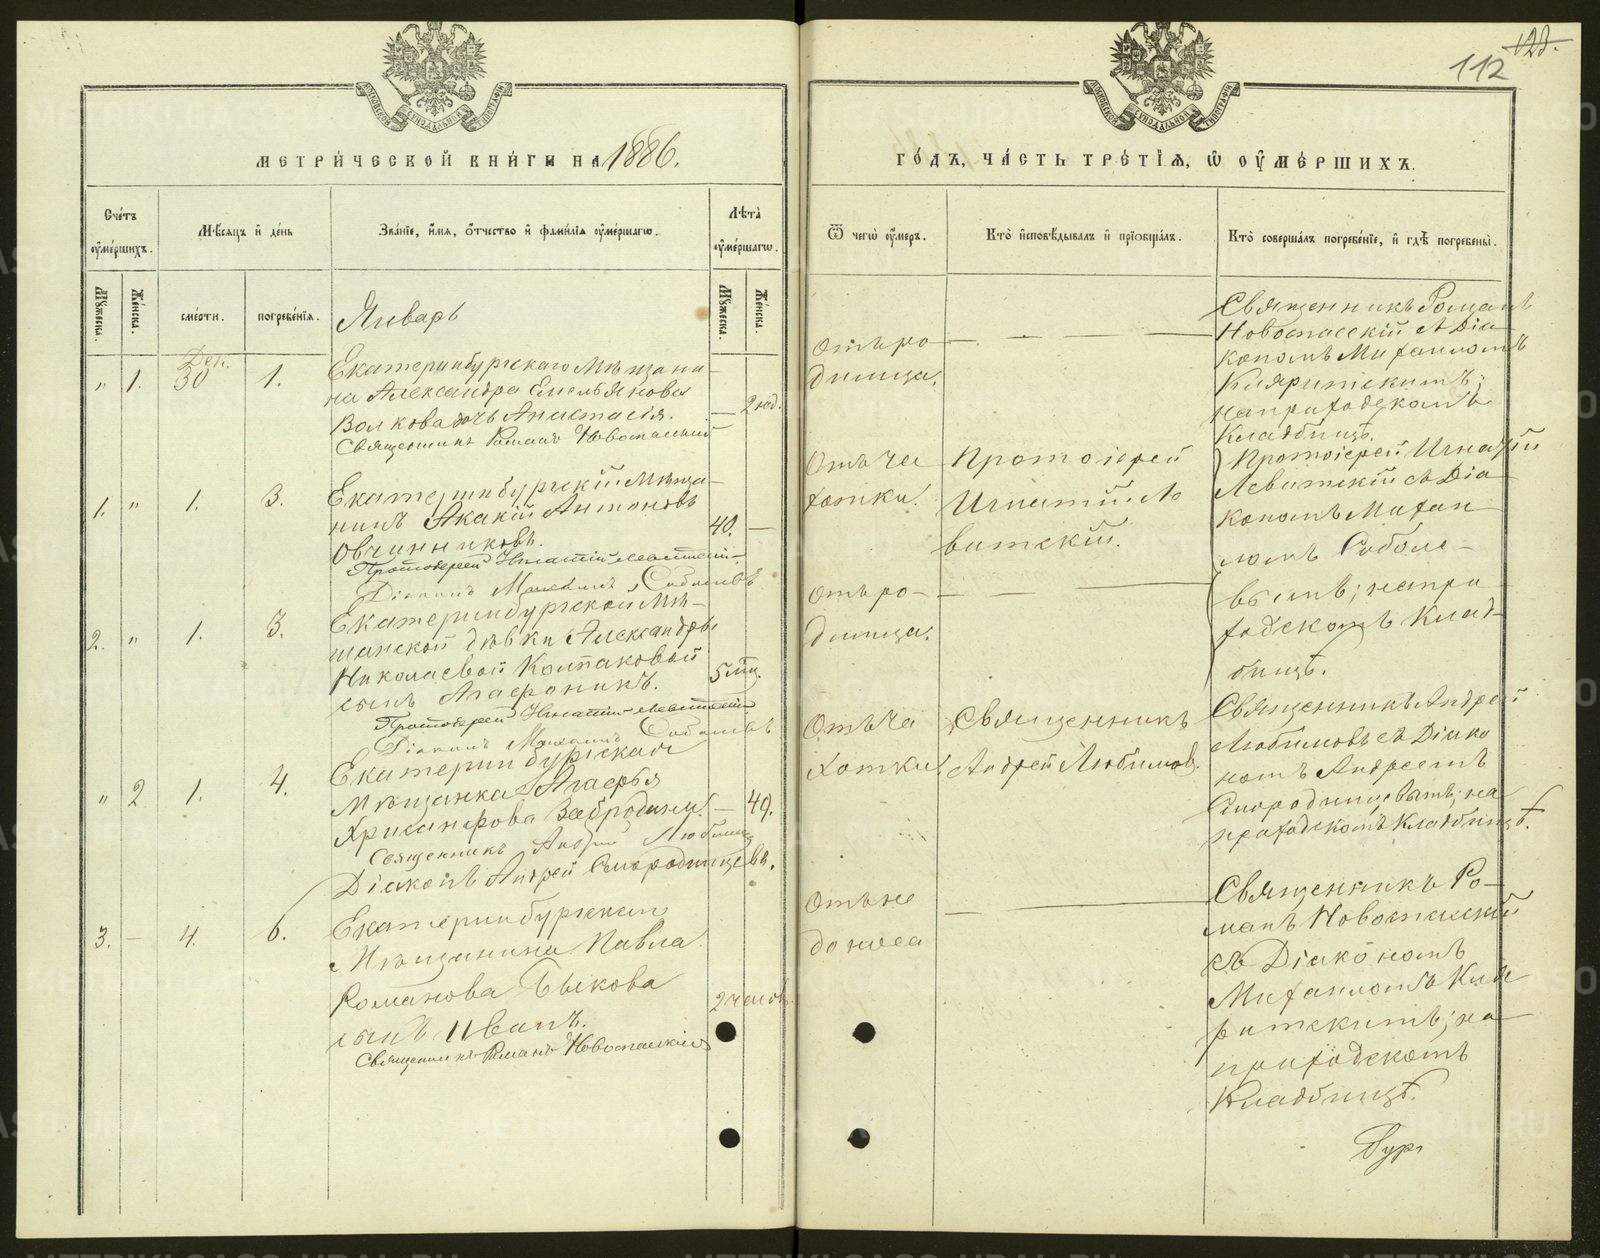 112
128.
МЕТРИ́ЧЕСКОЙ КНИ́ГИ НА 1886.
ГО́ДЪ, ЧА́СТЬ ТРЕ́ТІѦ, Ѿ ОУ҆МЕ́РШИХЪ.
Сче́тъ оу҆ме́ршихъ.
Мѣ́сяцъ и҆ де́нь
Зва́нїе, и҆́мя, ѻ҆́тчество и҆ фами́лїя оу҆ме́ршагѡ.
Лѣта̀ оу҆ме́ршагѡ.
Мꙋ́жеска.
Же́нска.
сме́рти.
погребе́нїя.
Мꙋ́жеска.
Же́нска.
Ѿ чегѡ̀ оу҆́меръ.
Кто̀ и҆сповѣ́дывалъ и҆ прїѡбща́лъ.
Кто̀ соверша́лъ погребе́нїе, и҆ гдѣ̀ погребены̀.
Январь
" 1.
Дек. 30
1.
Екатеринбургскаго Мѣщани-
на Александра Емельянова
Волкова дочь Анастасія.
— 2 нед.
Священникъ Романъ Новоспасскій
Отъ ро-
димца.
Священникъ Романъ
Новоспасскій съ Діа-
кономъ Михаиломъ
на приходскомъ
Кладбищѣ.
1. "
1.
3.
Екатеринбургскій Мѣща-
нинъ Акакій Антоновъ
Овчинниковъ.
40. —
Протоіерей Игнатій Левитскій
Діаконъ Михаилъ Соболевъ
Отъ ча
хотки.
Протоіерей
Игнатій Ле
витскій.
Протоіерей Игнатій
Левитскій съ Діа-
кономъ Михаи-
ломъ Соболе-
вымъ; на при
ходскомъ Клад-
бищѣ.
2. "
1.
3.
Екатеринбургской Мѣ-
щанской дѣвки Александры
Николаевой Колпаковой
сынъ Агафоникъ.
5 мц.
Протоіерей Игнатій Левитскій
Діаконъ Михаилъ Соболевъ
Отъ ро-
димца.
" 2
1.
4.
Екатеринбургская
Мѣщанка Агафья
Хрисанфова Забродина.
— 49.
Священникъ Андрей Любимовъ
Діаконъ Андрей Смородинцевъ.
Отъ ча
хотки.
Священникъ
Андрей Любимовъ.
Священникъ Андрей
Любимовъ съ Діако
номъ Андреемъ
Смородинцевымъ; на
приходскомъ Кладбищѣ.
3. —
4.
6.
Екатеринбургскаго
Мѣщанина Павла
Романова Быкова
сынъ Иванъ.
2 часов.
Священникъ Романъ Новоспасскій
Отъ не
доноса
Священникъ Ро-
манъ Новоспасскій
съ Діакономъ
на
приходскомъ
Кладбищѣ.
METRIKI.GASO-URAL.RU